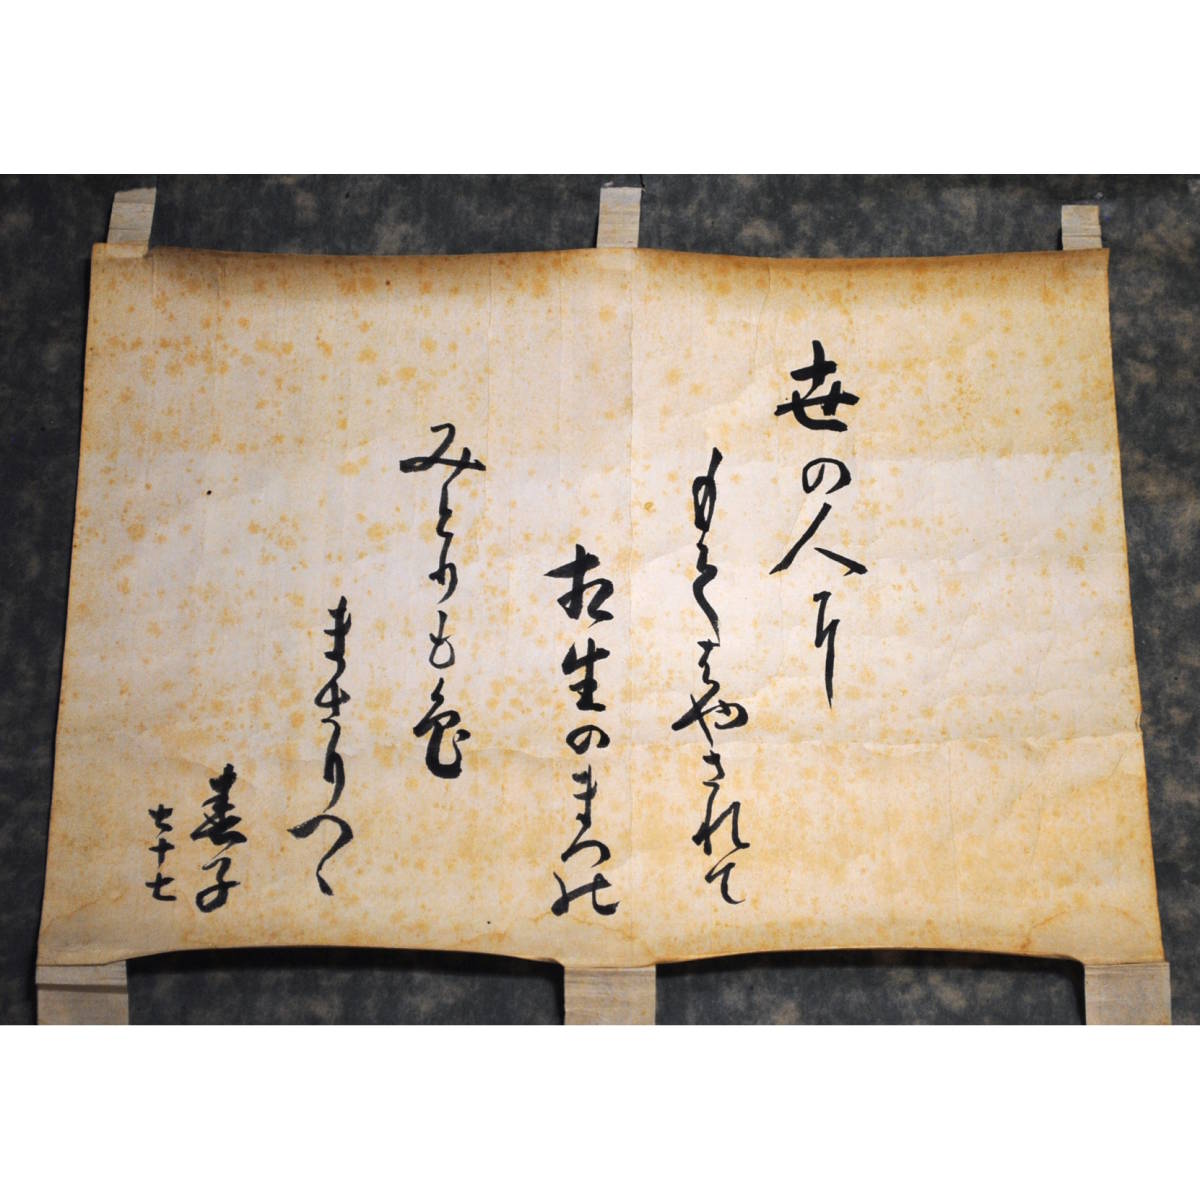 世の人耳
もてはやされて
相生のまつ能
みとりも色
まさりつゝ
春子
七十七